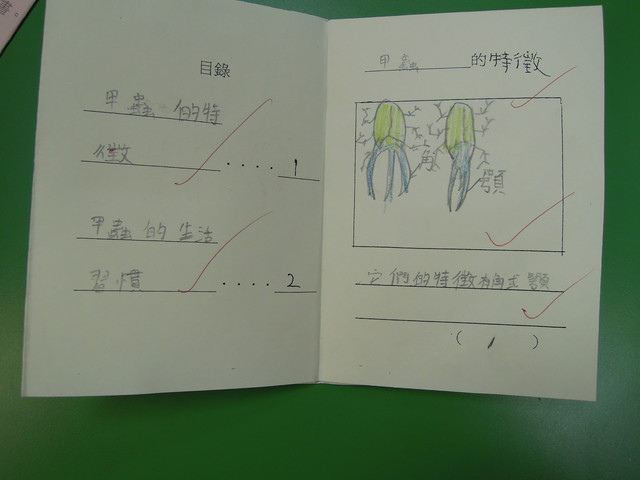 目錄
甲蟲的特
徵 ‧‧‧‧ 1
甲蟲的生活
習慣 ‧‧‧‧ 2
甲蟲的特徵
角
顎
它們的特徵有角或顎
( 1 )
書。